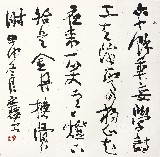 六十餘年妄學詩
工夫深處獨心知
夜来一笑寒燈下
始是金丹換骨
時